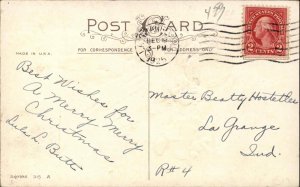 POST CARD
459
MADE IN U.S.A.
FOR CORRESPONDENCE
FOR ADDRESS ONLY
DEC
3-PM
2 CENTS 2
Best Wishes for
A Merry Merry
Christmas
Lula L. Butt
Master Beatty Hostetler
La Grange
Ind.
R#4
SERIES 35 A